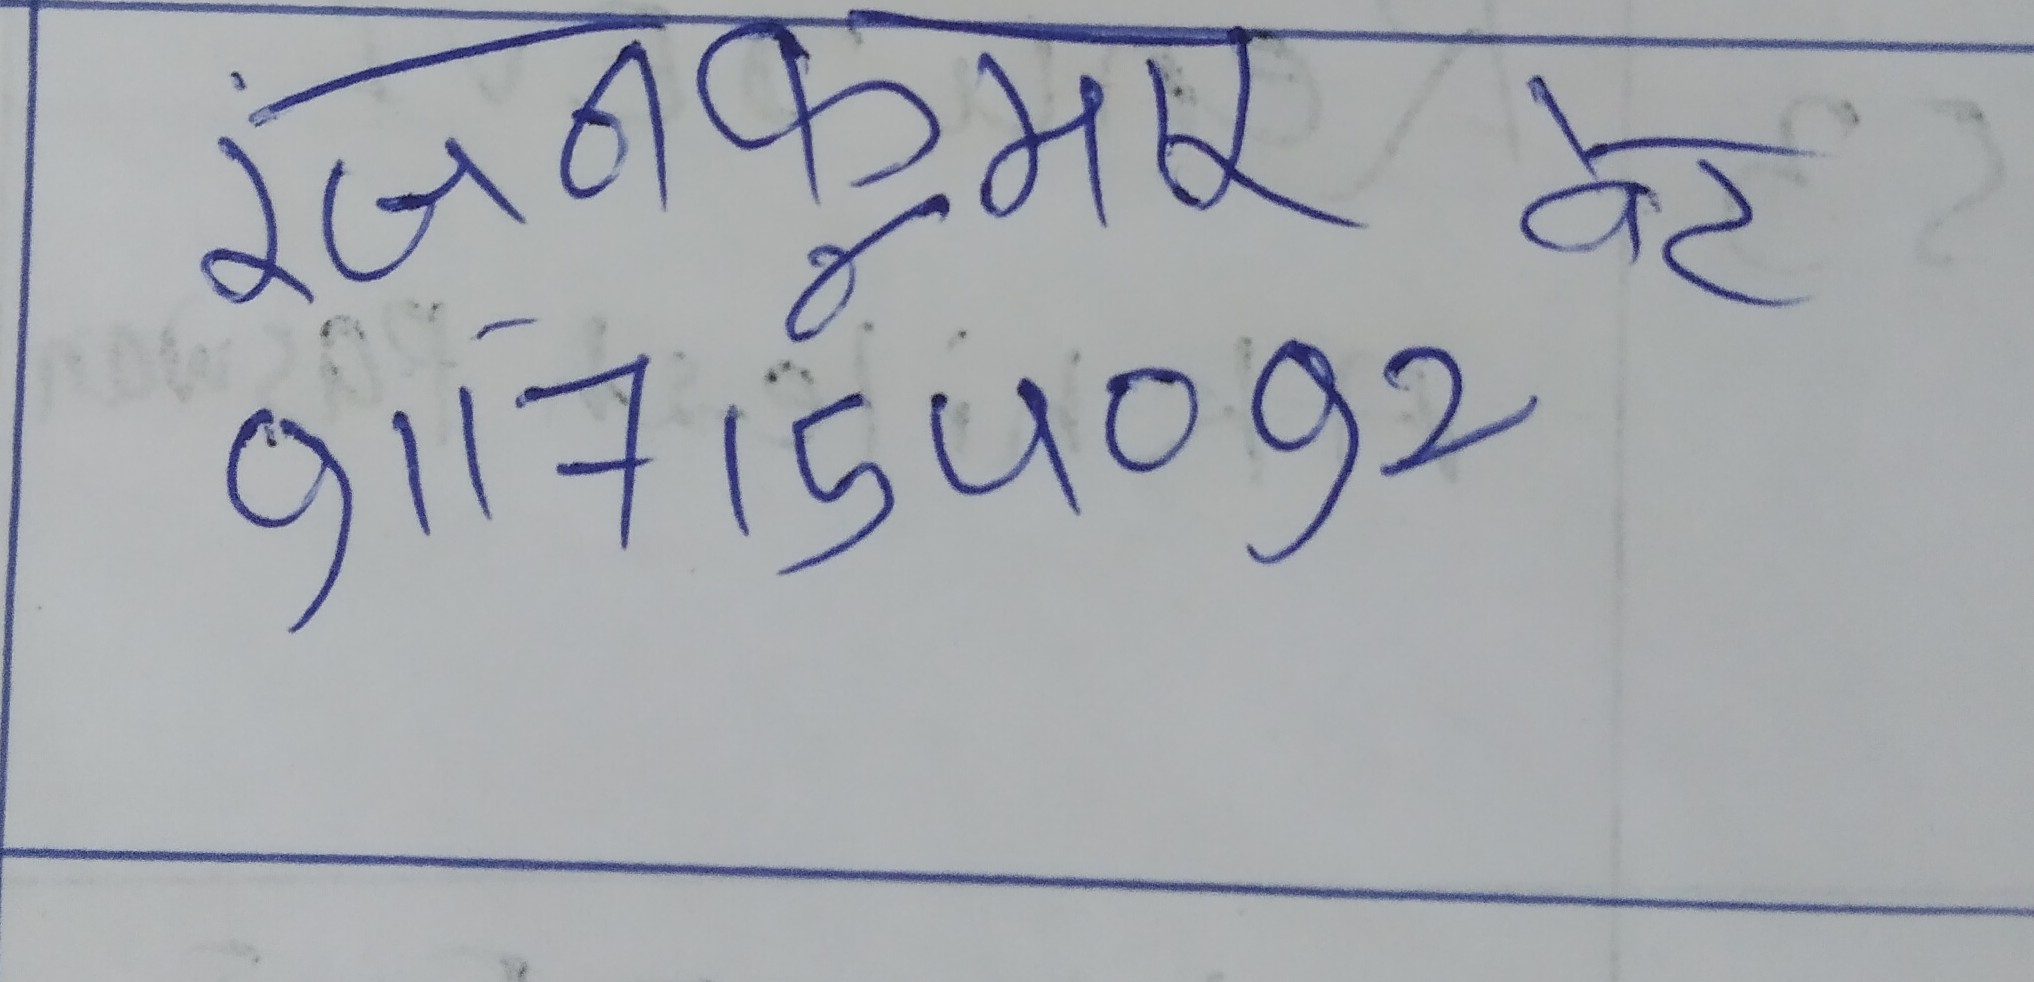 रंजन कुमार वेट
9117154092